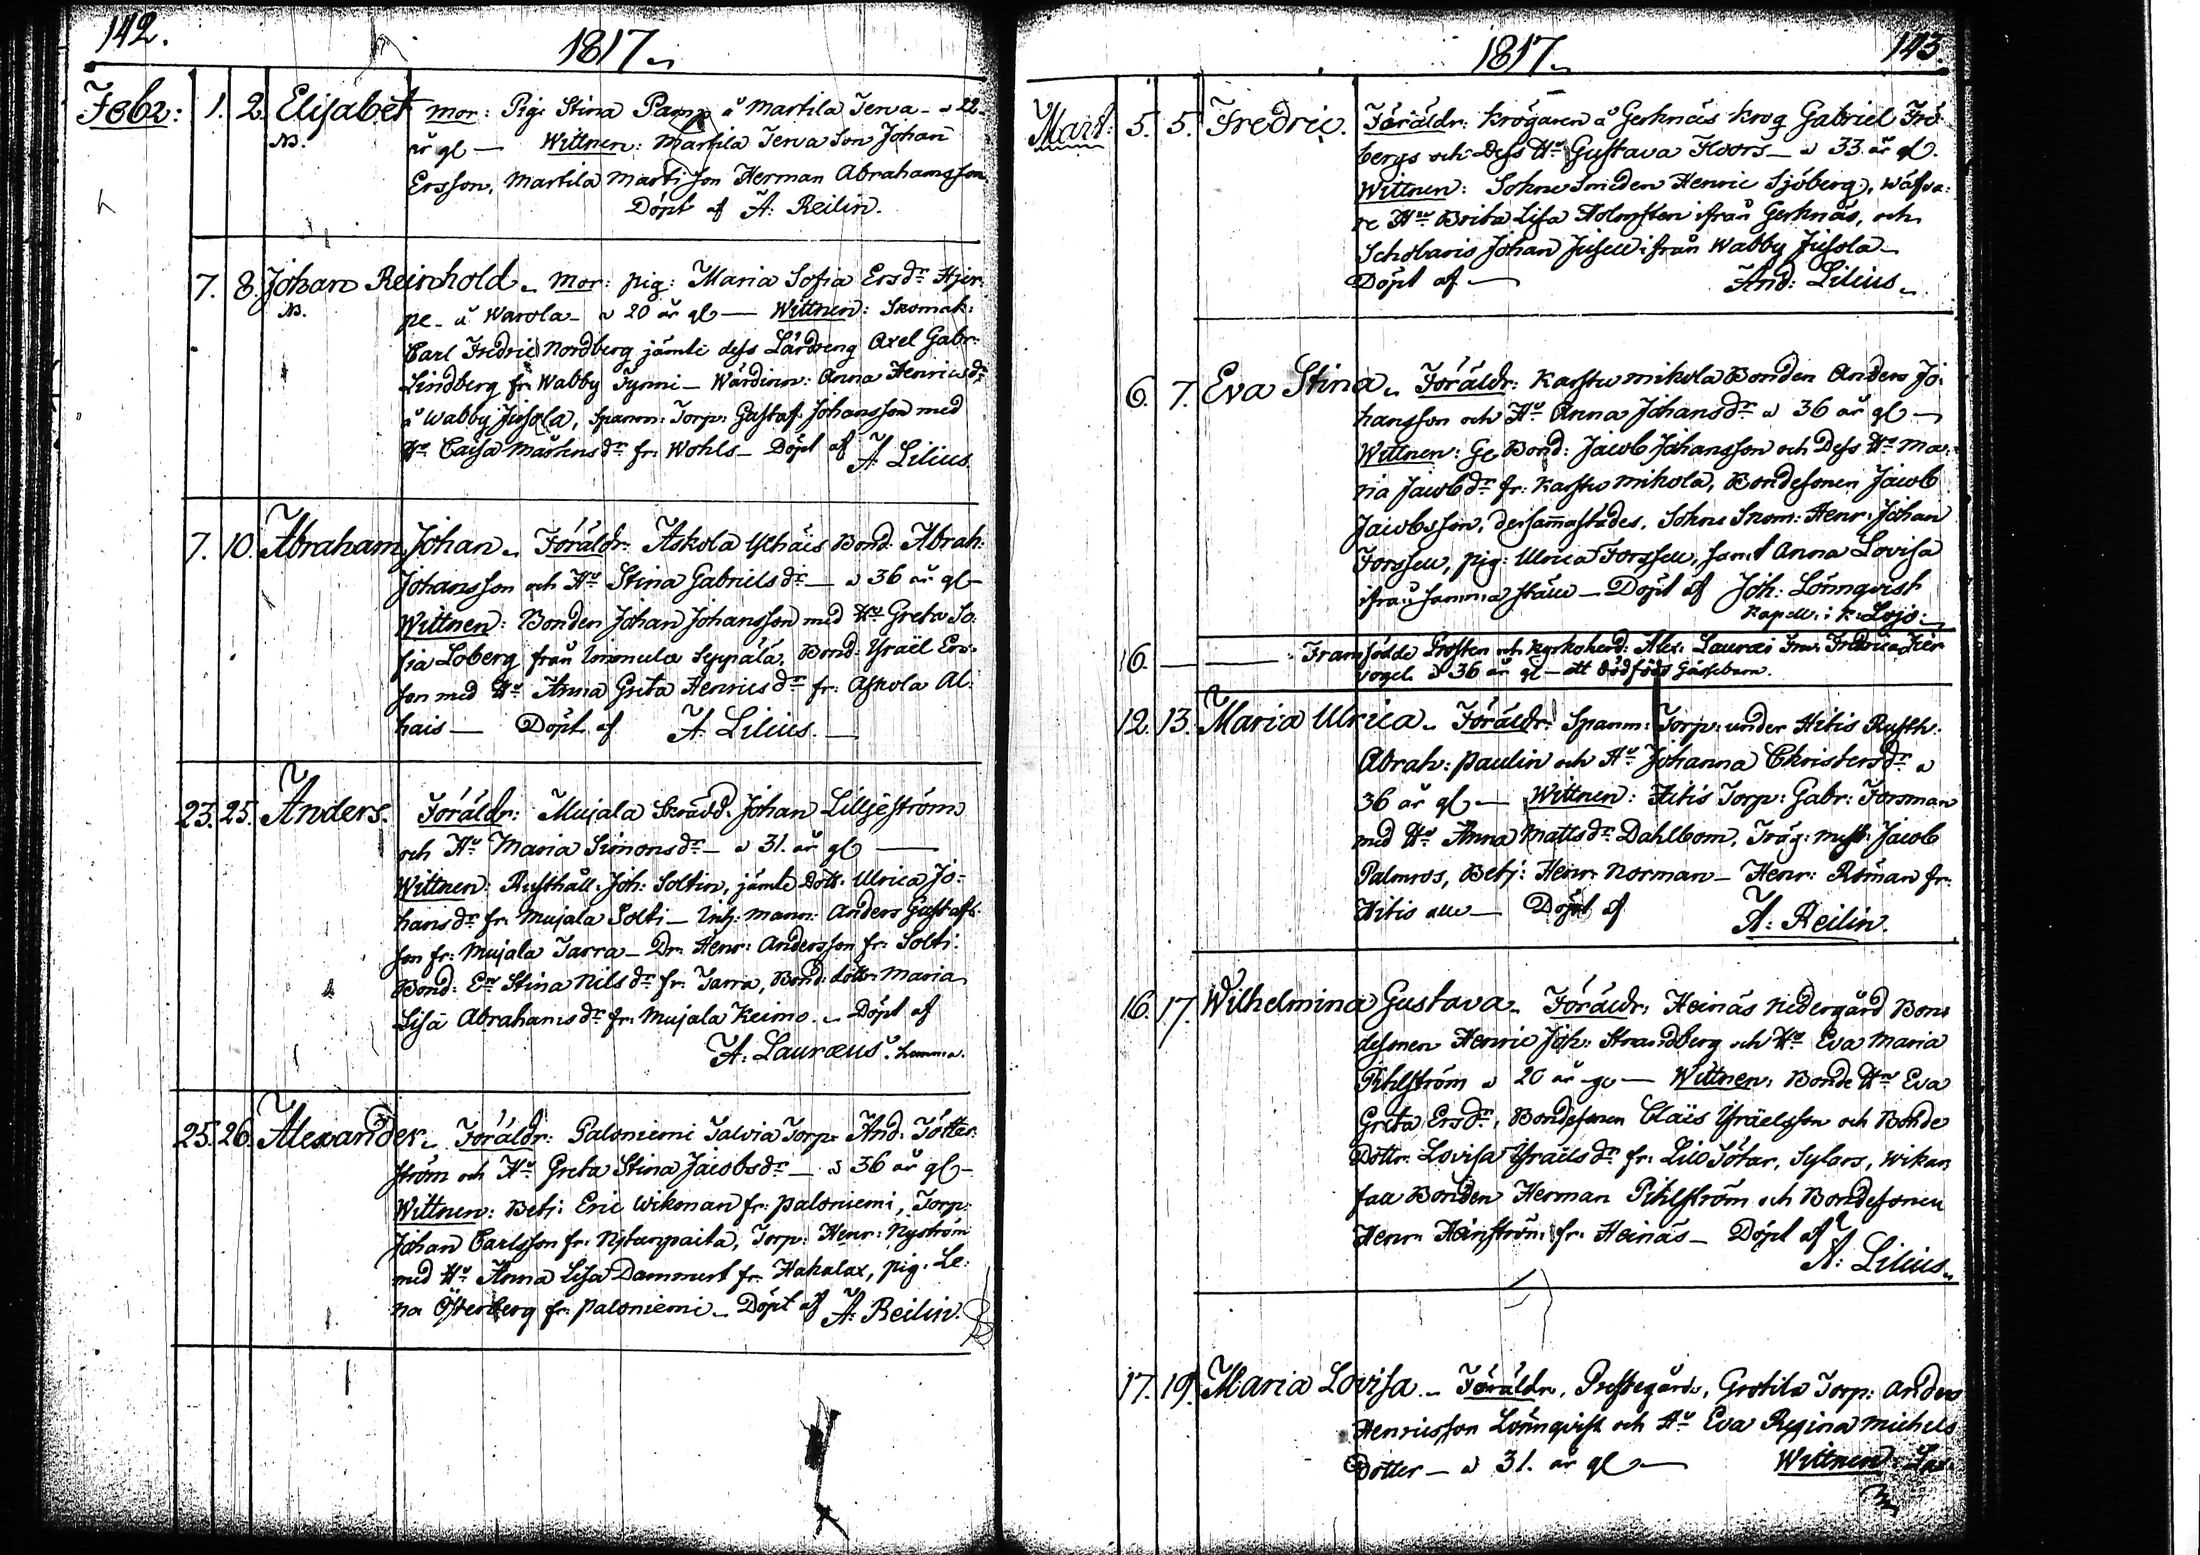 142.
1817
Febr: 1. 2. Elisabet Mor: Pig: Stina Pamp å Martila Jerva - a 22
N. år gl — Wittnen: Martila Jerva Son Johan
Ersson, Martila Marti Son Herman Abrahamsson
Döpt af A: Reilin.
7. 8. Johan Reinhold. Mor: pig: Maria Sofia Ersdr Hjer-
N. pe - å Warola - a 20 år gl — Wittnen: Skomak:
Carl Fredric Nordberg jämte dess Lärdreng Axel Gabr:
Lindberg fr: Wabby Tynni - Wärdinn: Anna Henricsdr
å Wabby Jusola, Spanm: Torp: Gustaf Johansson med
Hu Caisa Mårtensdr fr: Wohls - Döpt af A: Lilius
7. 10. Abraham Johan. Föräldr: Askola Bond: Abrah:
Johansson och Hu Stina Gabrielsdr - a 36 år gl -
Wittnen: Bonden Johan Johansson med Hu Greta So-
fia Loberg från Immula Seppälä, Bond: Ysraël Ers-
son med Hu Anna Greta Henricsdr fr: Askola Al-
hais — Döpt af A: Lilius. —
23. 25. Anders. Föräldr: Mujala Skrädd: Johan Lilljeström
och Hu Maria Simonsdr - a 31. år gl —
Wittnen: Rusthåll: Joh: Soltin, jämte Dott: Ulrica Jo-
hansdr fr: Mujala Solti - Inh: mann: Anders Gustafs-
son fr: Mujala Jarra - Dr: Henr: Andersson fr: Solti.
Bond: En Stina Nilsdr fr: Jarra, Bond: dott: Maria
Lisa Abrahamsdr fr: Mujala Keimo. - Döpt af
A: Lauræus.
25. 26. Alexander. Föräldr: Paloniemi Salvia Torp: And: Tötter-
ström och Hu Greta Stina Jacobsdr - a 36 år gl -
Wittnen: Betj: Eric Wikman fr: Paloniemi, Torp:
Johan Carlsson fr: Torp: Henr: Nyström
med Hu Anna Lisa Dammert fr: Hakalax, pig: Le-
na Österberg fr: Paloniemi - Döpt af A: Reilin.
1817
143.
Mart: 5. 5. Fredric. Föräldr: Krögaren å Gerknäs Krog Gabriel Frö-
bergs och Dess Hu Gustava Floors - a 33. år gl.
Wittnen: Sokne Smeden Henric Sjöberg,
re Hu Brita Lisa Holmsten ifrån Gerknäs, och
Scholaris Johan Juselli ifrån Wabby Jusola -
Döpt af — And: Lilius.
6. 7. Eva Stina. Föräldr: Karstu Mikola Bonden Anders Jo-
hansson och Hu Anna Johansdr a 36 år gl —
Wittnen: Bond: Jacob Johansson och Dess Hu Ma-
ria Jacobdr fr: Karstu Mikola, Bondesonen Jacob
Jacobsson, dersammastädes, Sokne Snom: Henr: Johan
Forssell, pig: Ulrica Forssell, samt Anna Lovisa
ifrån samma ställe - Döpt af Joh: Lönnqvist
Kapell: i K: Lojo.
6. — — Framfödde Prosten och Kyrkoherd: Alex: Lauræi Fru: Fredrica Fier
vogel. a 36 år gl - ett dödfödt Gåssebarn.
12. 13. Maria Ulrica. Föräldr: Spanm: Torp: under Hitis Rusth:
Abrah: Paulin och Hu Johanna Christersdr a
36 år gl — Wittnen: Hitis Torp: Gabr: Forsman
med Hu Anna Mattsdr Dahlbom, Träg: mest: Jacob
Palmros, Betj: Henr: Norman - Henr: Röman fr:
Hitis alle — Döpt af A: Reilin.
16. 17. Wilhelmina Gustava. Föräldr: Heinäs Nedergård Bon-
desonen Henric Joh: Strandberg och Hu Eva Maria
Pihlström a 20 år gl — Wittnen: Bonde Hu Eva
Greta Ersdr, Bondesonen Claës Ysräelsson och Bonde
Dottr: Lovisa Ysraëlsdr fr: Lill Tötar,
Bonden Herman Pihlström och Bondesonen
Henr: Heinström fr: Heinäs - Döpt af
A: Lilius.
17. 19. Maria Lovisa. - Föräldr: Prestegårds, Grotila Torp: Anders
Henricsson Lönnqvist och Hu Eva Regina Michels
Dotter - a 31. år gl — Wittnen: